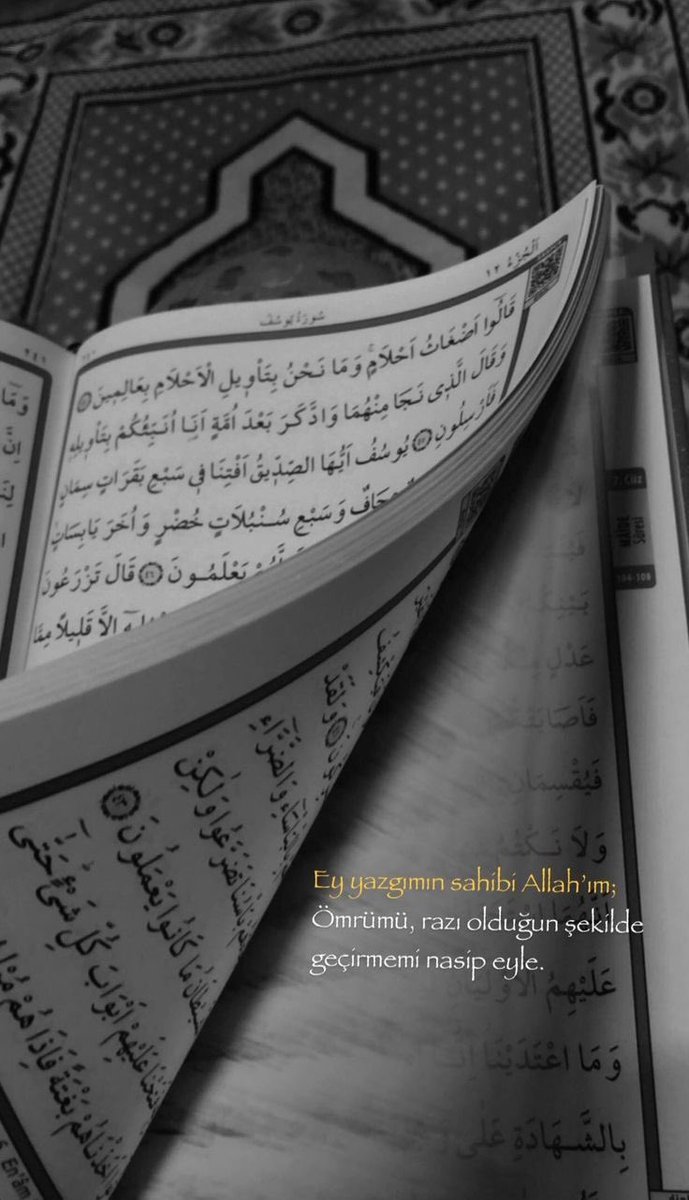 اَلْجُزْءُ ١٢
سُورَةُ يُوسُفَ
٢٤١
قَالُٓوا اَضْغَاثُ اَحْلَامٍۚ وَمَا نَحْنُ بِتَأْو۪يلِ الْاَحْلَامِ بِعَالِم۪ينَ
وَقَالَ الَّذ۪ي نَجَا مِنْهُمَا وَادَّكَرَ بَعْدَ اُمَّةٍ اَنَا۬ اُنَبِّئُكُمْ بِتَأْو۪يلِه۪
فَاَرْسِلُونِ يُوسُفُ اَيُّهَا الصِّدّ۪يقُ اَفْتِنَا ف۪ي سَبْعِ بَقَرَاتٍ سِمَانٍ
عِجَافٌ وَسَبْعِ سُنْبُلَاتٍ خُضْرٍ وَاُخَرَ يَابِسَاتٍ
يَعْلَمُونَ ٤٦ قَالَ تَزْرَعُونَ
اِلَّا قَل۪يلًا مِمَّا
وَلَقَدْ
بِالْبَأْسَٓاءِ وَالضَّرَّٓاءِ
بَأْسُنَا تَضَرَّعُوا وَلٰكِنْ
مَا كَانُوا يَعْمَلُونَ ٤٣
عَلَيْهِمْ اَبْوَابَ كُلِّ شَيْءٍۜ حَتّٰٓى
اَخَذْنَاهُمْ بَغْتَةً فَاِذَا هُمْ
En'âm
7. Cüz
MÂİDE
Sûresi
104-108
عَدْلٍ
فَاَصَابَتْكُمْ
فَيُقْسِمَانِ
وَلَا نَكْتُمُ
عَلَيْهِمُ الْاَوْلَيَانِ
وَمَا اعْتَدَيْنَاۘ اِنَّٓا
بِالشَّهَادَةِ عَلٰى
Ey yazgımın sahibi Allah'ım;
Ömrümü, razı olduğun şekilde
geçirmemi nasip eyle.